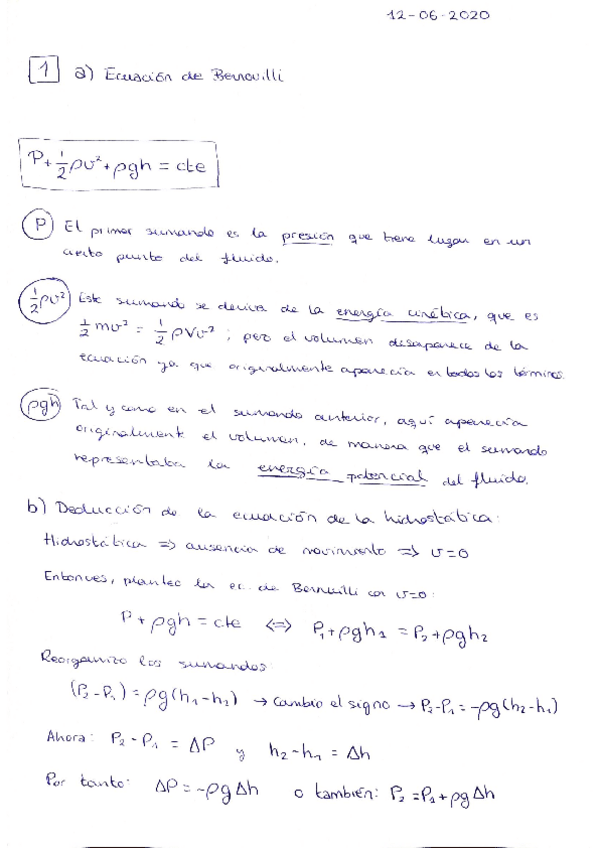 12-06-2020
1 a) Ecuación de Bernouilli
P + 1/2 ρv² + ρgh = cte
P El primer sumando es la presión que tiene lugar en un
cierto punto del fluido.
1/2 ρv² Este sumando se deriva de la energía cinética, que es
1/2 mv² = 1/2 ρVv² ; pero el volumen desaparece de la
ecuación ya que originalmente aparecía en todos los términos.
ρgh Tal y como en el sumando anterior, aquí aparecía
originalmente el volumen, de manera que el sumando
representaba la energía potencial del fluido.
b) Deducción de la ecuación de la hidrostática:
Hidrostática => ausencia de movimiento => v=0
Entonces, planteo la ec. de Bernouilli con v=0:
P + ρgh = cte <=> P₁+ρgh₁ = P₂+ρgh₂
Reorganizo los sumandos:
(P₂-P₁) = ρg(h₁-h₂) → cambio el signo → P₂-P₁ = -ρg(h₂-h₁)
Ahora: P₂-P₁ = ΔP y h₂-h₁ = Δh
Por tanto: ΔP = -ρgΔh o también: P₂ = P₁ + ρgΔh